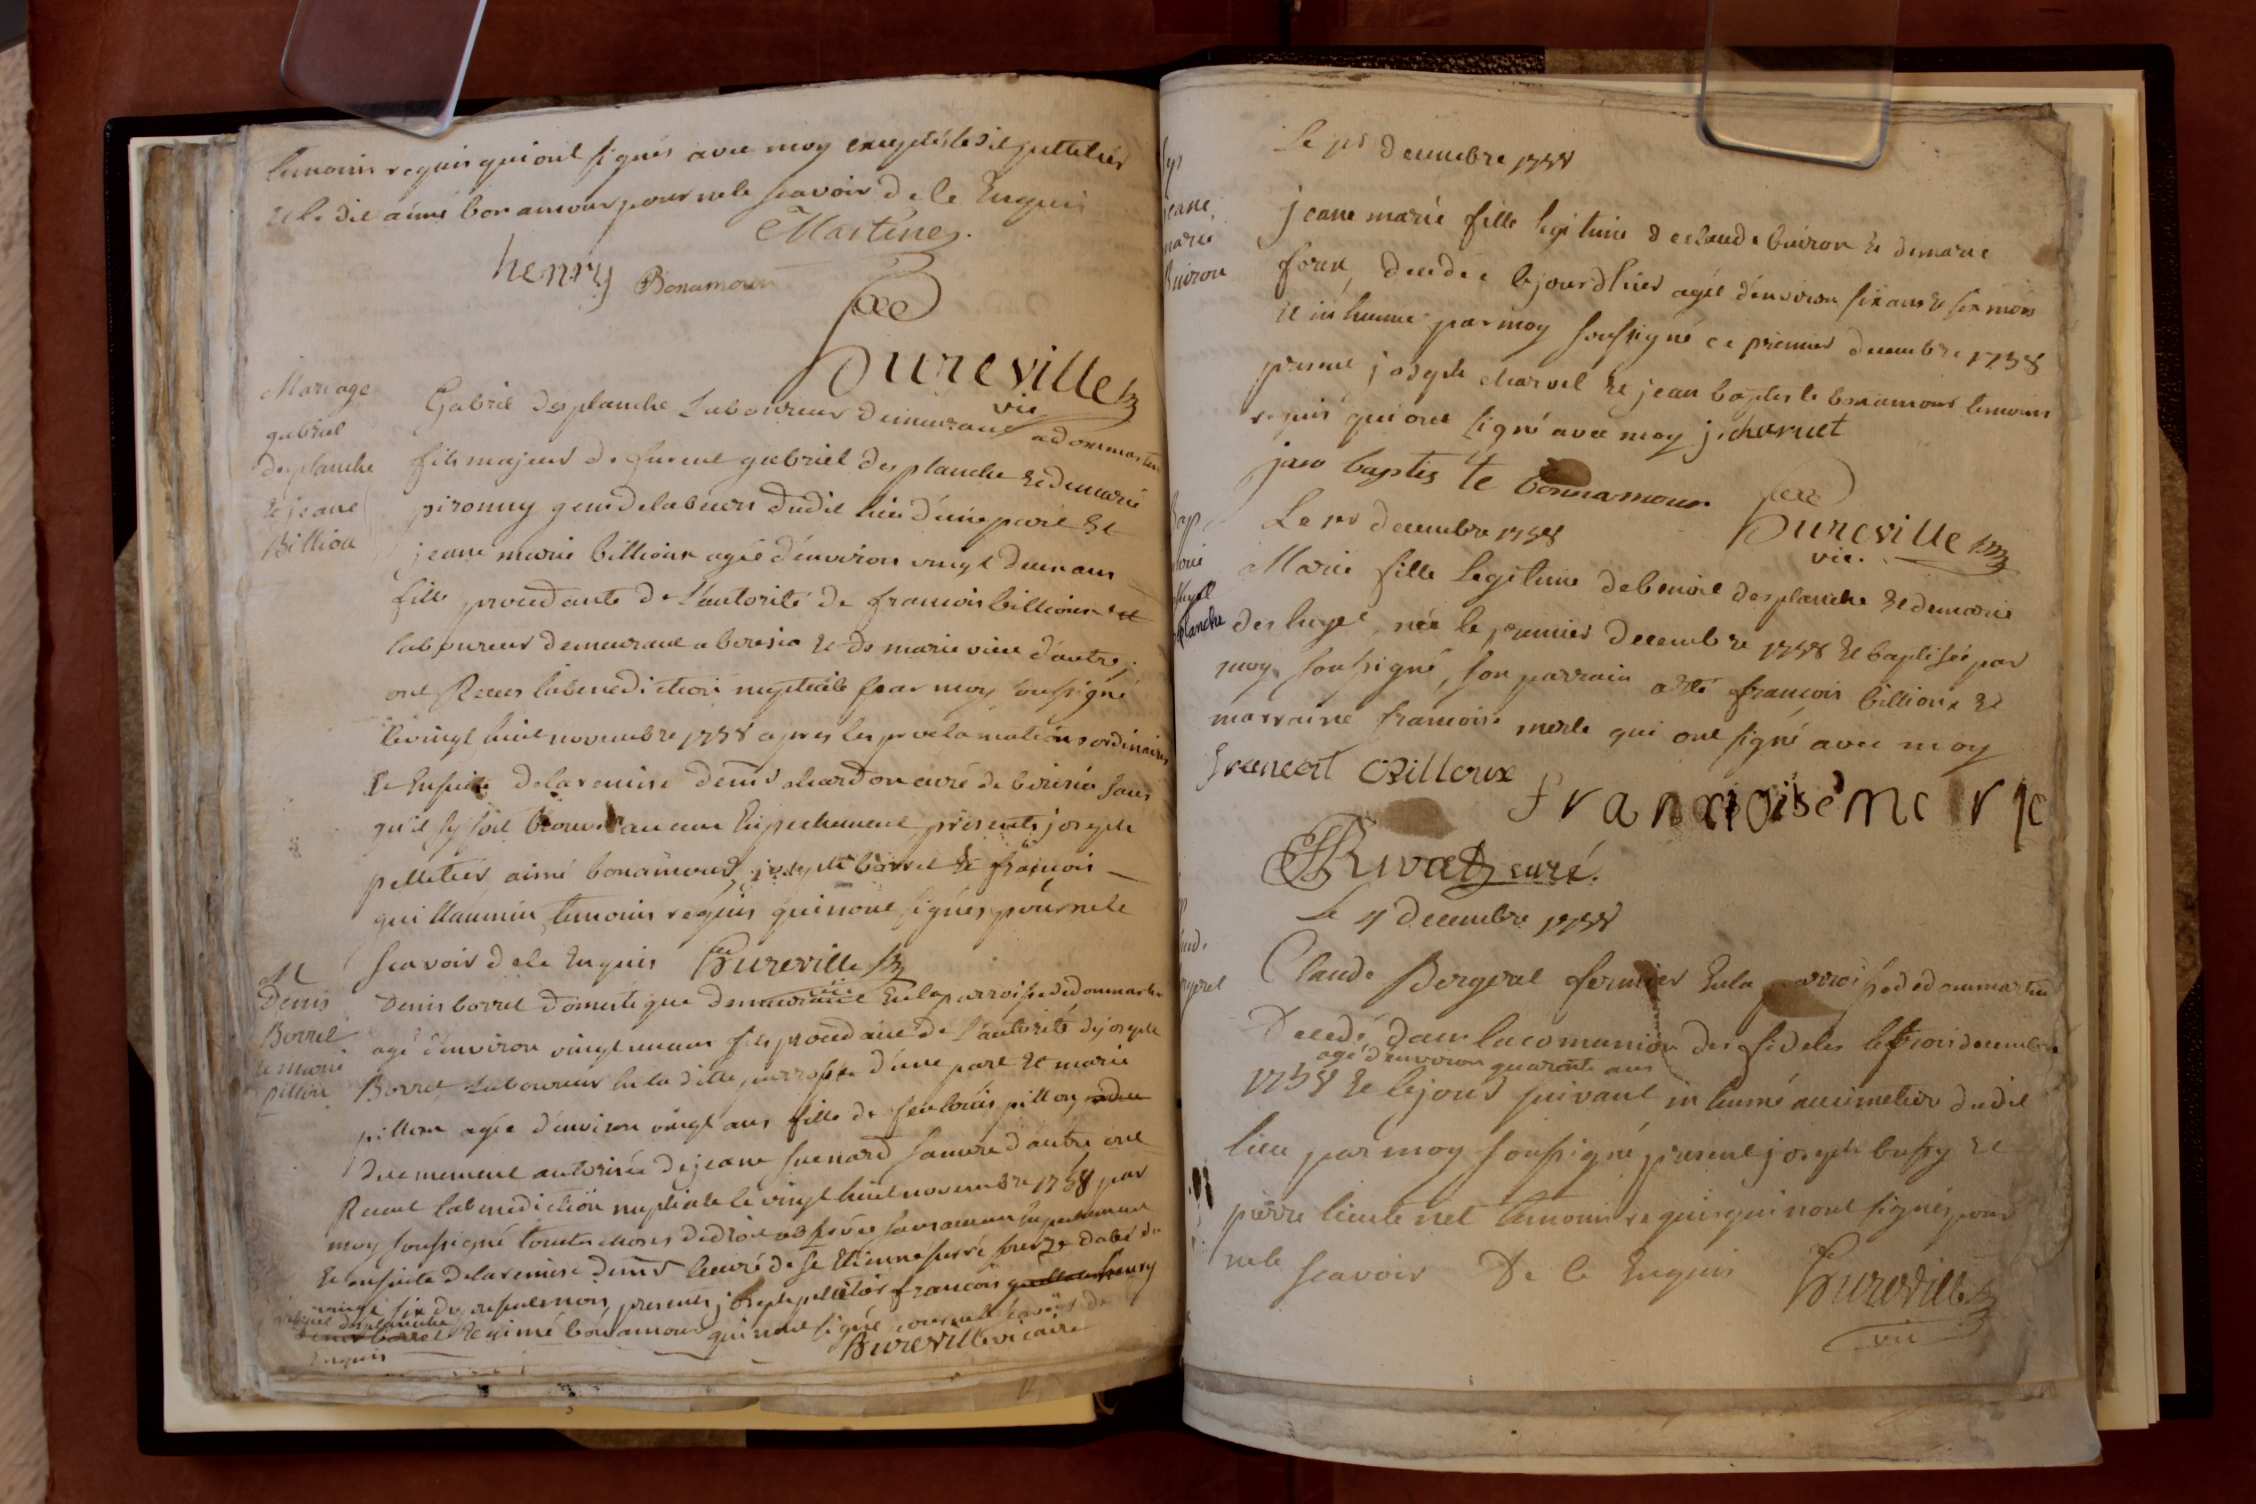 temoins requis qui ont signés avec moy exceptés ledit pelletier
et le dit aimé bonamour pour ne le scavoir de le Enquis
Martine
henry Bonamour
Bureville
vic
Mariage
gabriel
desplanche
et jeane
Billiou
Gabriel desplanche Laboureur demeurant a dommartin
fils majeur de furent gabriel desplanche et de marie
pironny gens de labeurs dudit lieu d'une part Et
jeane marie billioux agée d'environ vingt deux ans
fille procedante de L'autorité de francois billioux et
laboureur demeurant a boresia et de marie d'autre
ont Receus la benediction nuptiale par moy soussigné
le vingt huit novembre 1758 apres les proclamations ordinaires
Et Ensuite de la remise de mr chardon curé de boresia sans
qu'il sy soit trouvé aucun Enpechement presents joseph
pelletier, aimé bonamour, joseph borrel et francois
guillaumin temoins requis qui n'ont signés pour ne le
scavoir de le Enquis Bureville
vic
M
Denis
Borrel
et marie
pillon
Denis borrel domestique demeurant En la parroisse de dommartin
agé d'environ vingt un ans fils procedant de L'autorité de joseph
Borrel Laboureur En la ditte parroisse d'une part et marie
pillon agée d'environ vingt ans fille de feu louis pillon
duement autorisée de jeane fuenard sa mere d'autre ont
Receut la benediction nuptiale le vingt huit novembre 1758 par
moy soussigné toutes choses de droit observées sans aucun Enpechement
Et ensuite de la remise de mr le curé de st Etienne
vingt six du present mois, presents joseph pelletier francois
gabriel desplanche et aimé bonamour qui n'ont signé pour ne le scavoir de
Enquis
Bureville vicaire
jeane
marie
Buiron
Le 1er decembre 1758
jeane marie fille legitime de claude buiron et de marie
forex, decedée le jour d'hier agée d'environ six ans et six mois
et inhumée par moy soussigné ce premier decembre 1758
present joseph charvet et jean baptiste bonamour temoins
requis qui ont signé avec moy j. charuet
jean baptis te bonnamour
Bureville
vic.
Bap
planche
Le 1er decembre 1758
Marie fille legitime de benoit desplanche et de marie
des huyet, née le premier decembre 1758 et baptisée par
moy soussigné, son parrain a été francois billioux et
marraine francoise merle qui ont signé avec moy
francoit Billoux francoise merle
Rivat curé.
Le 4 decembre 1758
Claude Bergeret fermier En la parroisse de dommartin
Decedé dans la comunion des fideles le trois decembre
agé d'environ quarante ans
1758 et le jour suivant inhumé au cimetier dudit
lieu par moy soussigné present joseph bussy et
pierre lieutenet temoins requis qui n'ont signés pour
ne le scavoir De le Enquis Bureville
vic